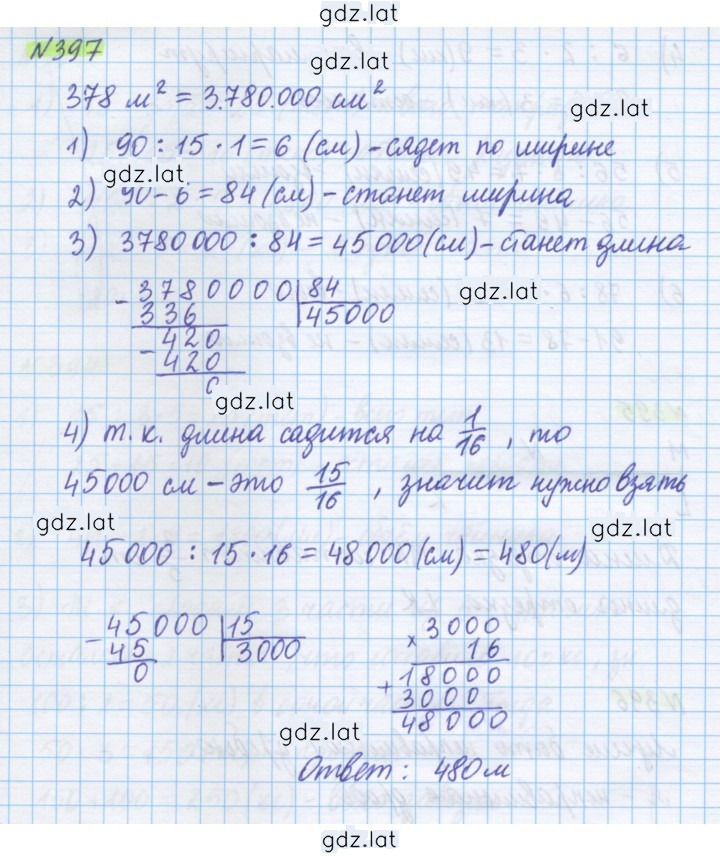 gdz.lat
№397
gdz.lat
378 м² = 3.780.000 см²
gdz.lat
1) 90 : 15 · 1 = 6 (см) – сядет по ширине
gdz.lat
2) 90 – 6 = 84 (см) – станет ширина
3) 3780000 : 84 = 45000 (см) – станет длина
gdz.lat
– 3780000 | 84
336 | 45000
– 420
420
0
gdz.lat
4) т.к. длина садится на 1/16, то
45000 см – это 15/16, значит нужно взять
gdz.lat gdz.lat
45000 : 15 · 16 = 48000 (см) = 480 (м)
– 45000 | 15
45 | 3000
0
× 3000
16
+ 18000
3000
48000
gdz.lat
Ответ: 480 м
gdz.lat